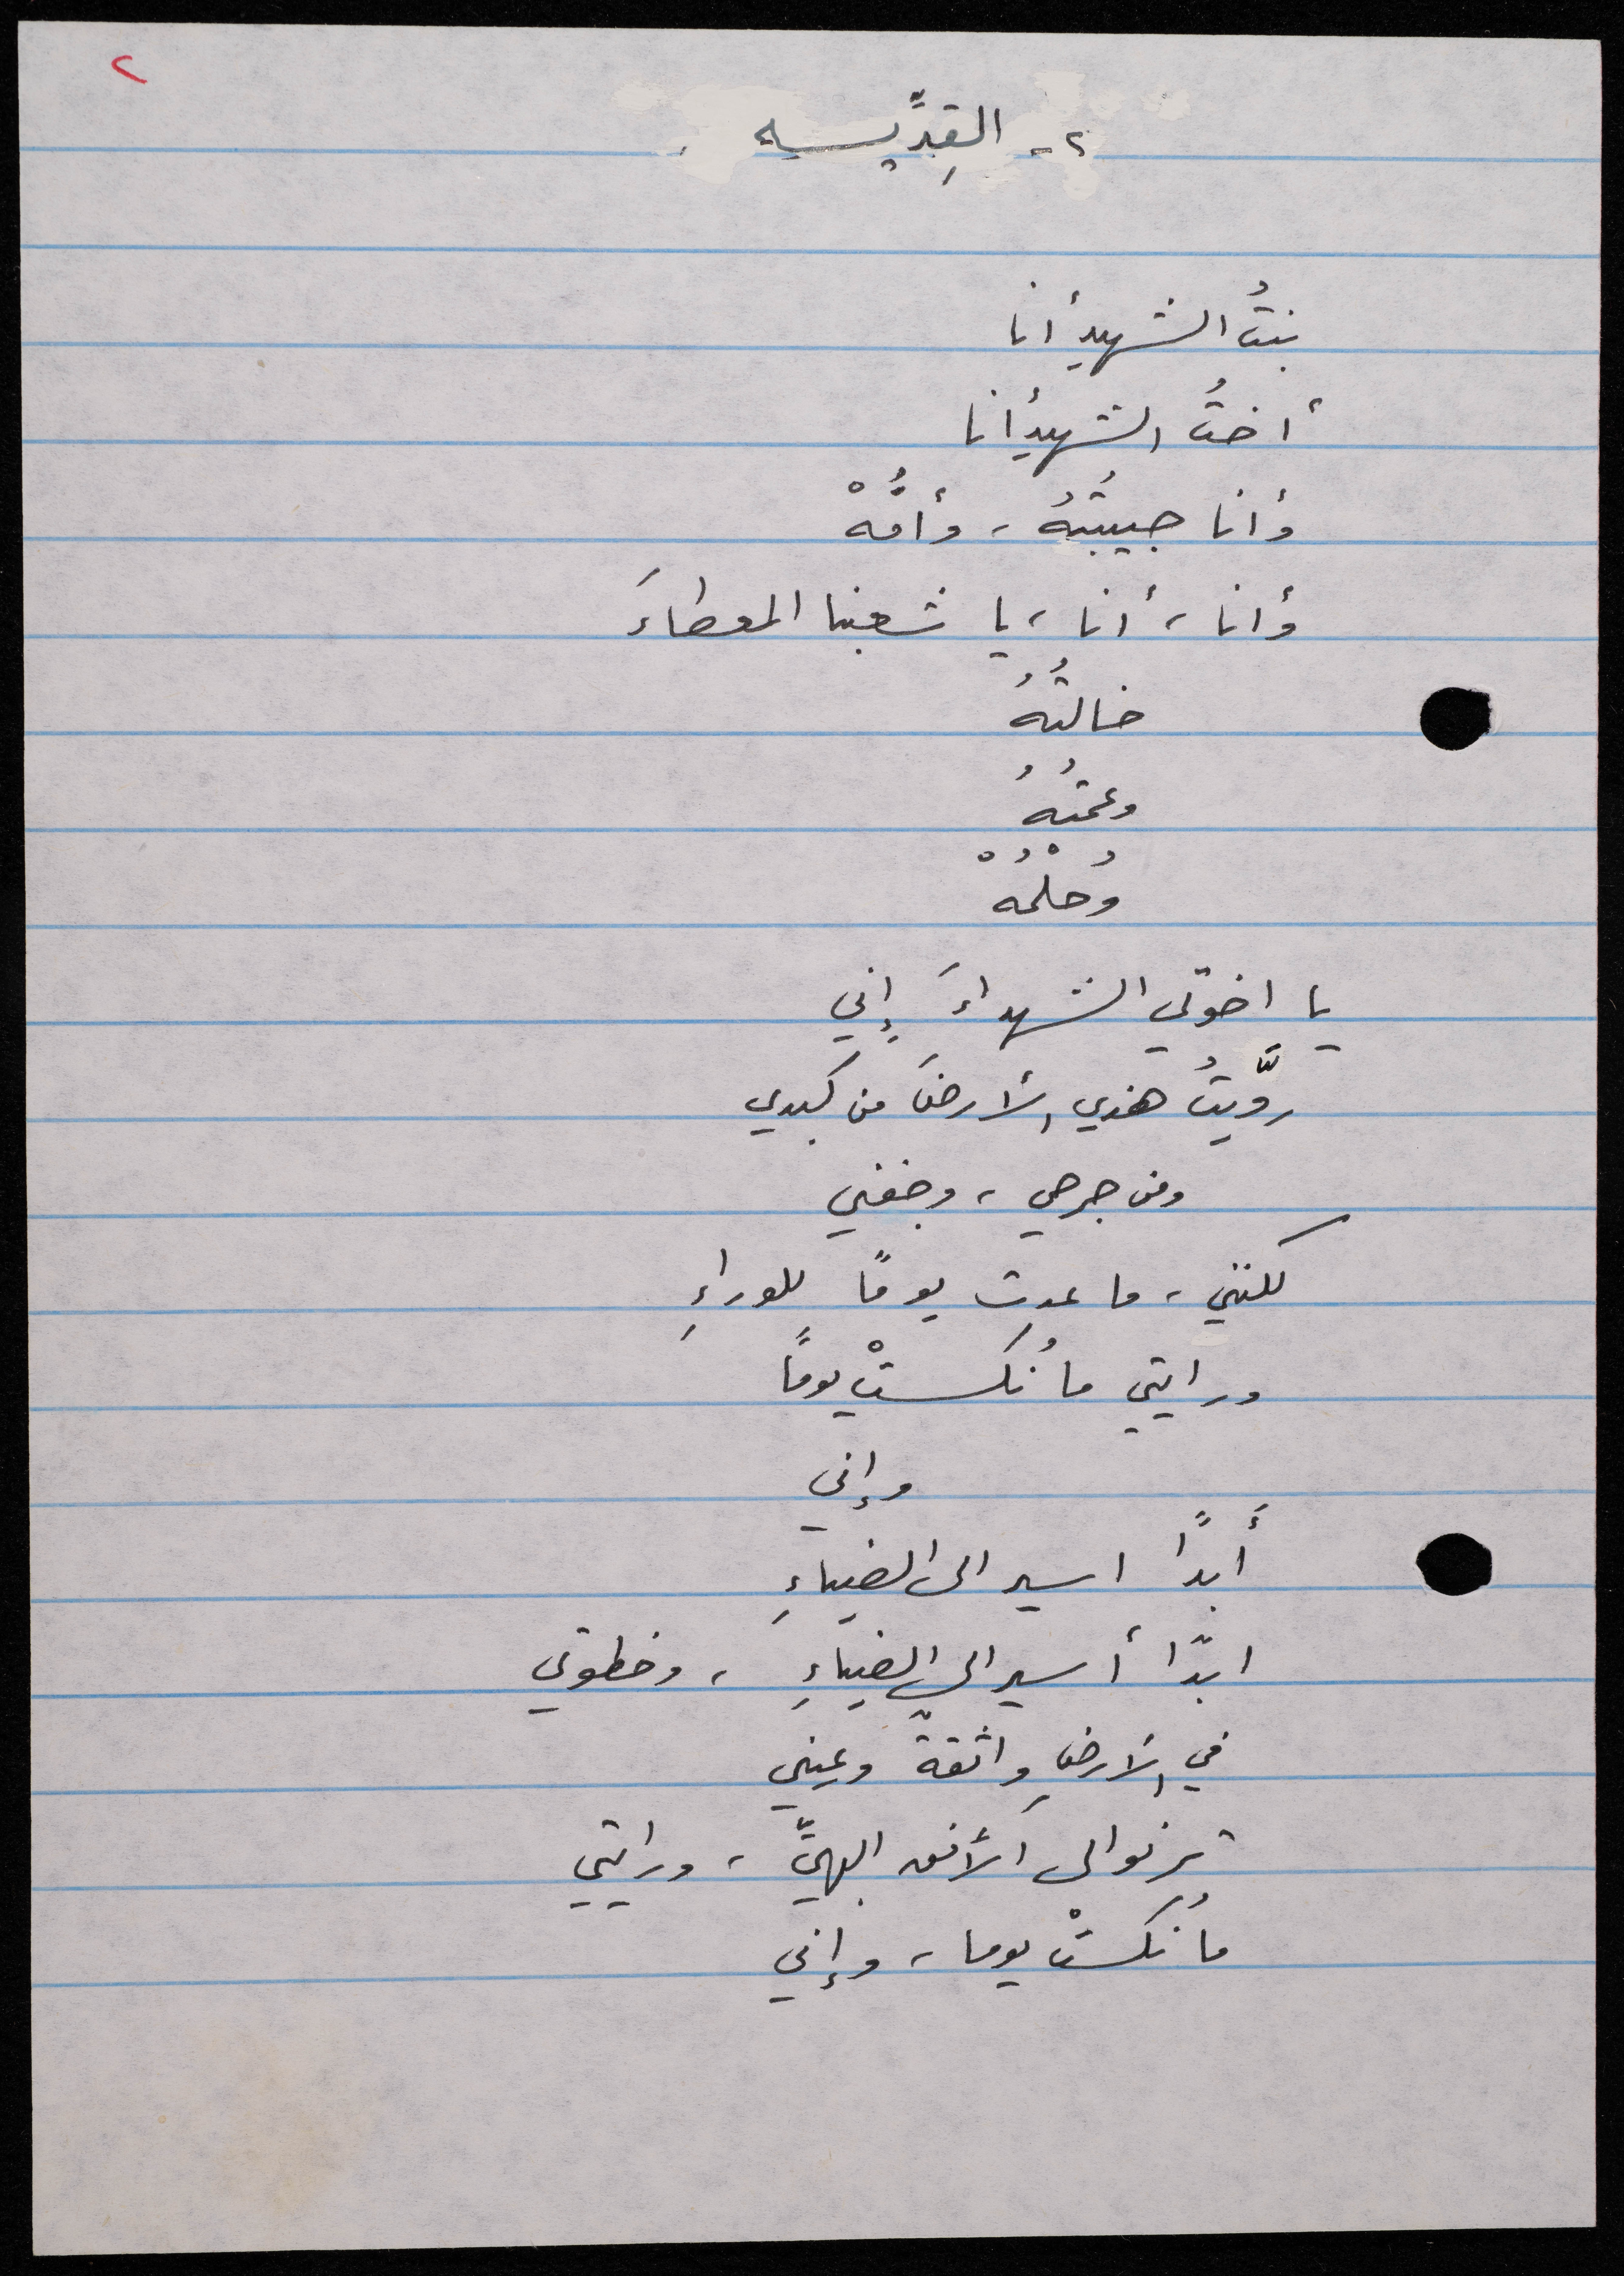 ٢
٢ - القِدِّيسه
بنتُ الشهيدِ أنا
أختُ الشهيدِ أنا
وأنا حبيبتُهُ، وأمُّهْ
وأنا، أنا، يا شعبنا المعطاءَ
خالتُهُ
وعمتُهُ
وُحلْمُهْ
يا اخوتي الشهداءَ إِني
روَّيتُ هذي الأرضَ من كبدي
ومن جرحي، وجفني
لكنني، ما عدت يومًا للوراءِ
ورايتي ما نُكستْ يومًا
وإني
أَبدًا اسير الى الضياءِ
ابدًا أسير الى الضياءِ، وخطوتي
في الأرضِ واثقةٌ وعيني
ترنو الى الأفق البهيِّ، ورايتي
ما نُكستْ يوما، وإني